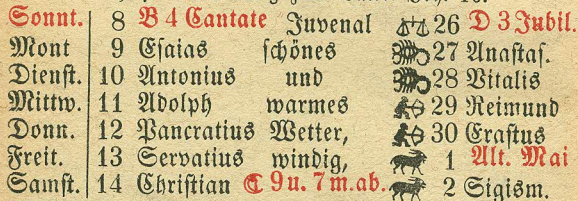 Sonnt. 8 B 4 Cantate Juvenal 26 D 3 Jubil.
Mont 9 Esaias schönes 27 Anastas.
Dienst. 10 Antonius und 28 Vitalis
Mittw. 11 Adolph warmes 29 Reimund
Donn. 12 Pancratius Wetter, 30 Erastus
Freit. 13 Servatius windig, 1 Alt. Mai
Samst. 14 Christian ☾ 9 u. 7 m. ab. 2 Sigism.